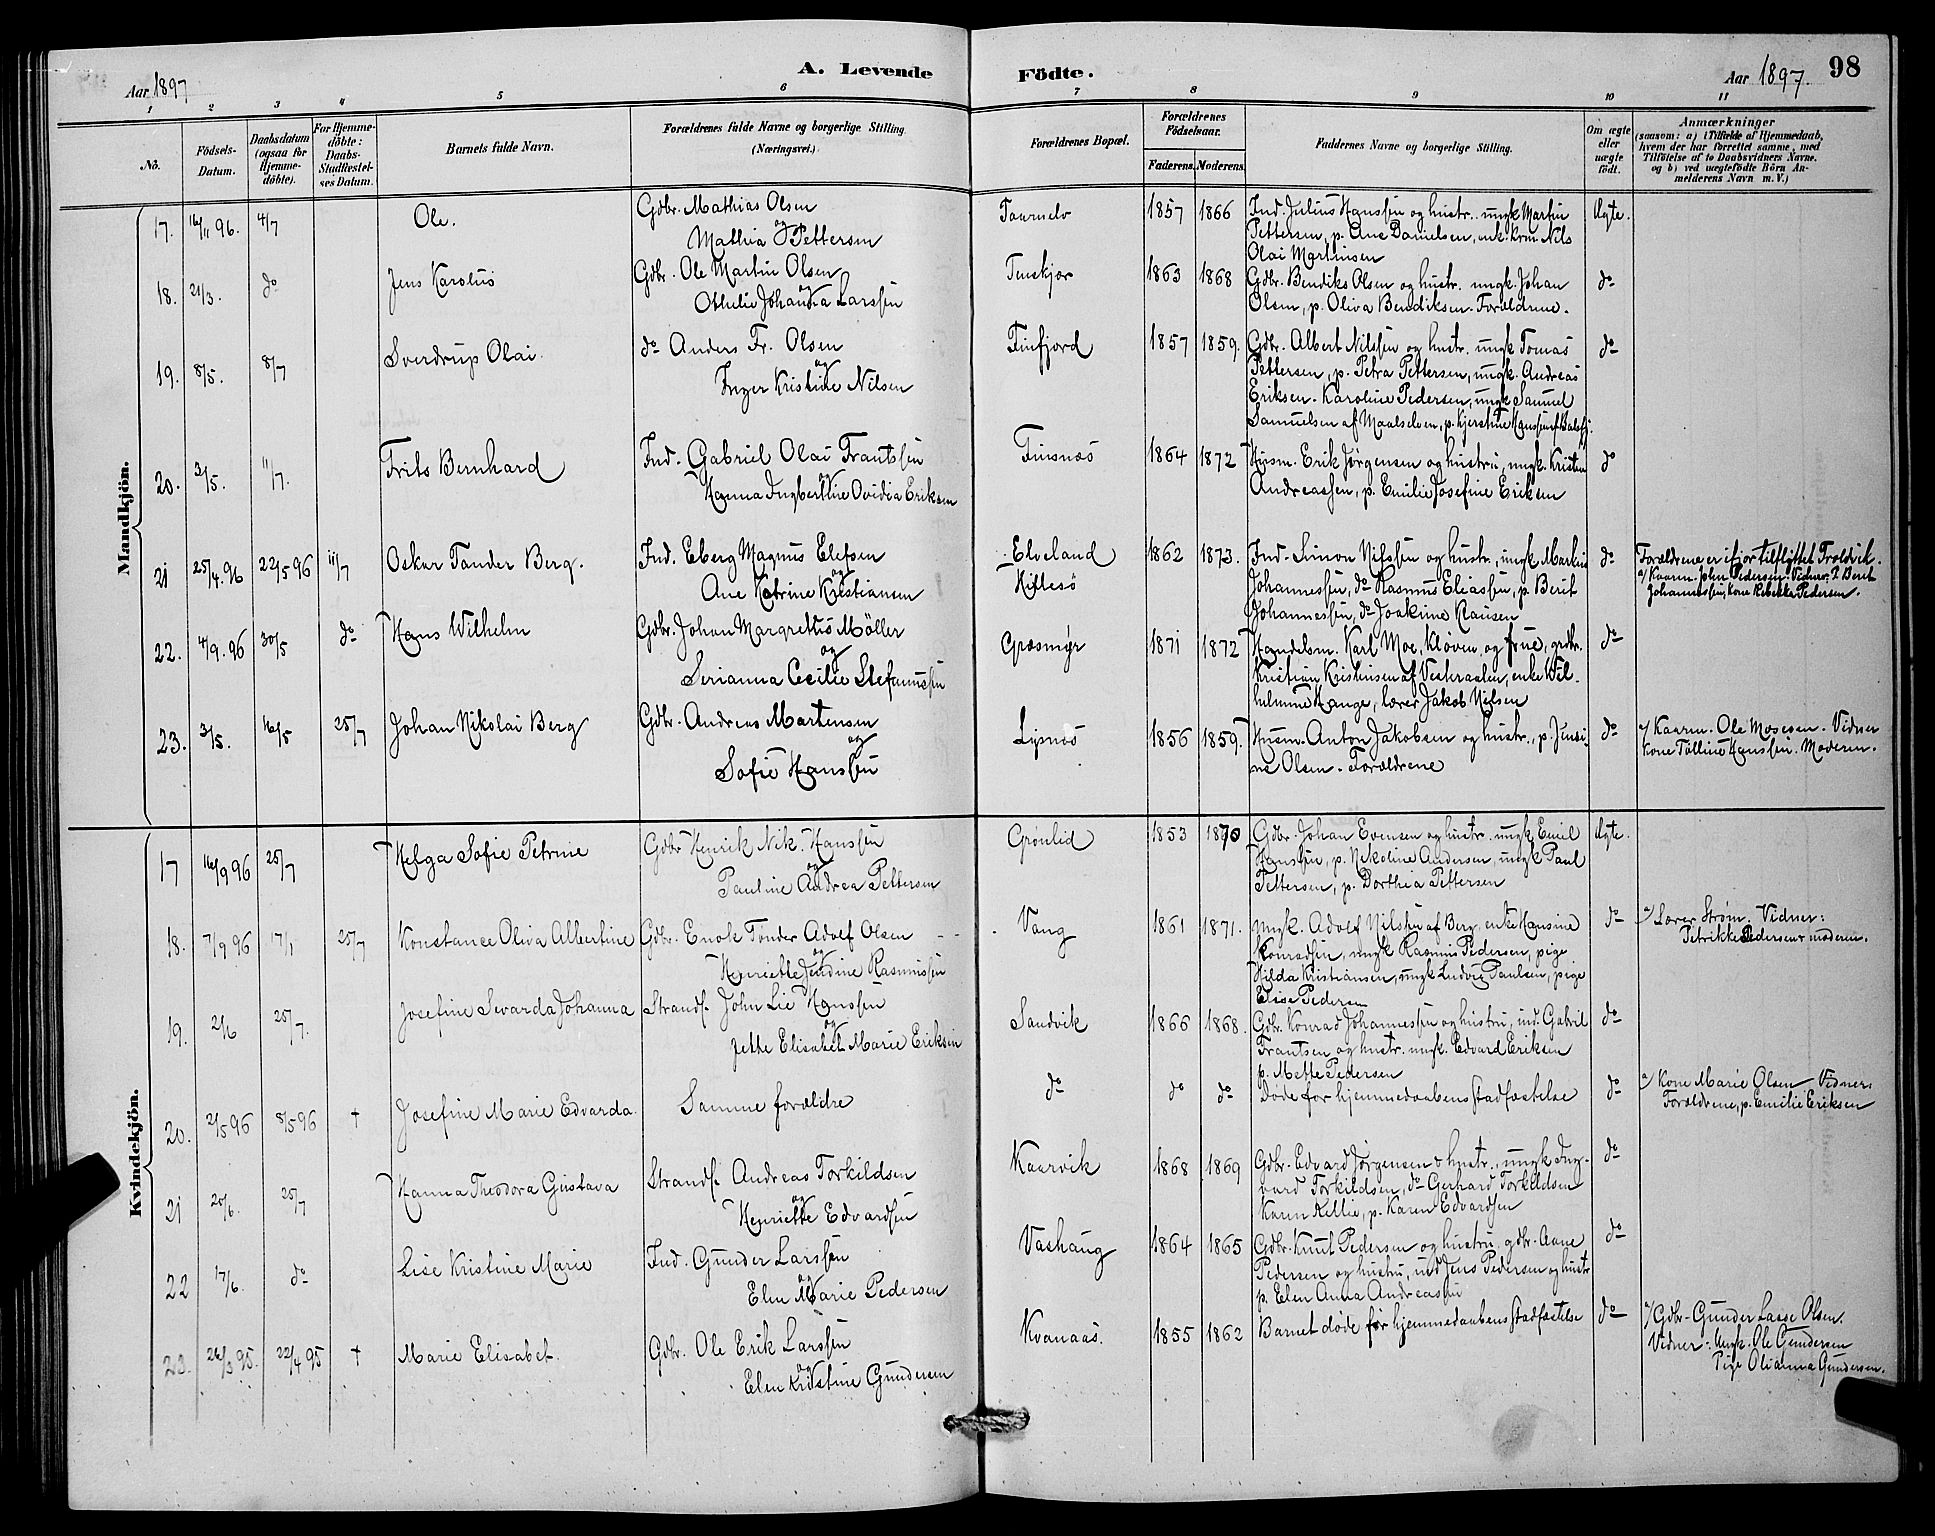 Aar 1897
A. Levende
Födte.
Aar 1897.
98
1 2 3 4 5 6 7 8 9 10 11
No.
Födsels-Datum.
Daabsdatum (ogsaa for Hjemme-döbte).
For Hjemme-döbte: Daabs-Stadfæstel-ses Datum.
Barnets fulde Navn.
Forældrenes fulde Navne og borgerlige Stilling.
(Næringsvei.)
Forældrenes Bopæl.
Forældrenes Födselsaar.
Faderens. Moderens.
Faddernes Navne og borgerlige Stilling.
Om ægte eller uægte födt.
Anmærkninger
(saasom: a) i Tilfælde af Hjemmedaab,
hvem der har forrettet samme, med
Tilföielse af to Daabsvidners Navne.
og b) ved uægtefödte Börn An-
melderens Navn m. V.)
Mandkjön.
17. 16/11 96. 4/7 Ole. Gdbr. Mathias Olsen
og
Mathia Pettersen
Taarnelv 1857 1866 Ind. Julius Hanssen og hustr. ungk Martin
Pettersen, p. Ane Danielsen, enk. krm. Nils
Olai Martinsen
Ægte.
18. 21/3. do Jens Karolus Gdbr. Ole Martin Olsen
og
Othelie Johanna Larssen
Tenskjær 1863 1868 Gdbr. Bendiks Olsen og hustr. ungk. Johan
Olsen, p. Oliva Bendiksen. Forældrene.
do
19. 8/5. 8/7 Sverdrup Olai do Anders Fr. Olsen
og
Inger Kristine Nilsen
Finfjord 1857 1859. Gdbr. Albert Nilssen og hustr. ungk Tomas
Pettersen, p. Petra Pettersen, ungk. Andreas
Eriksen. Karoline Pedersen, ungk Samuel
Samuelsen af Maalselven, p. Kjerstine Hanssen af Balsfj.
do
20. 2/5. 11/7. Frits Bernhard Ind. Gabriel Olai Frantssen
og
Hanna Ingberthine Ovidia Eriksen
Finsnæs 1864 1872 Husm. Erik Jørgensen og hustru, ungk. Kristen
Andreassen, p. Emilie Josefine Eriksen
do
21 25/4.96 22/5 96 11/7 Oskar Tander Berg. Ind. Eberg Magnus Elefsen
og
Ane Katrine Kristiansen
Elveland
Hillesö
1862 1873. Ind. Simon Nilssen og hustr., ungk Markus
Johannessen, do Rasmus Eliassen, p. Berit
Johannessen, do Joakime Klausen
do Forældrene er ifjor tilflyttet Troldvik.
a/ Kaarm. John Pedersen. Vidner: P. Berit
Johannessen, kone Rebekka Pedersen.
22. 4/9. 96 30/5 do Hans Wilhelm Gdbr. Johan Margrethus Möller
og
Serianna Cecilie Stefanussen
Græsmyr 1871 1872 Handelsm. Karl Moe, Kløven, og frue, grdbr.
Kristian Kristensen af Vesteraalen, enke Wil-
helmine Hauge, lærer Jakob Nilsen
do
23. 3/5. 16/5 25/7 Johan Nikolai Berg Gdbr. Andreas Martensen
og
Sofie Hanssen
Lysnæs 1856 1859. Husm. Anton Jakobsen og hustr., p. Jensi-
ne Olsen. Forældrene
do a/ Kaarm. Ole Mosesen. Vidner
Kone Tolline Hanssen. Moderen.
Kvindekjön.
17 16/9 96 25/7 Helga Sofie Petrine Gdbr Henrik Nik. Hanssen
og
Pauline Andrea Pettersen
Grønlid 1853 1870 Gdbr. Johan Evensen og hustr. ungk Emil
Hanssen, p. Nikoline Andersen, ungk Paul
Pettersen, p. Dorthea Pettersen
Ægte.
18. 7/9 96 17/1 25/7 Konstance Oliva Albertine Gdbr. Enok Tönder Adolf Olsen
og
Henriette Jendine Rasmussen
Vang 1861 1871. Ungk. Adolf Nilssen af Berg, enke Hansine
Konradsen, ungk Rasmus Pedersen, pige
Hilda Kristiansen, ungk Ludvig Paulsen, pige
Elise Pedersen
do a/ Lærer Strøm. Vidner:
Petrikke Pedersen + moderen.
19. 2/6 25/7. Josefine Sevarda Johanna Strands. John Lie Hanssen
og
Jette Elisabet Marie Eriksen
Sandvik 1866 1868. Gdbr. Konrad Johannessen og hustru, ind. Gabriel
Frantsen og hustr. ungk. Edvard Eriksen
p. Mette Pedersen
do
20. 2/5 96 8/5 96 † Josefine Marie Edvarda. Samme forældre
do do do Døde før hjemmedaabens stadfæstelse do a/ Kone Marie Olsen Vidner:
Forældrene, p. Emilie Eriksen
21 20/6. 25/7 Hanna Theodora Gustava Strands. Andreas Torkildsen
og
Henriette Edvardsen
Kaarvik 1868 1869 Gdbr. Edvard Jørgensen & hustr., ungk Ing-
vard Torkildsen, do Gerhard Torkildsen
Karen Kellie, p. Karen Edvardsen
do
22 17/6. do Lise Kristine Marie Ind. Gunder Larssen
og
Elen Marie Pedersen
Vashaug 1864 1865 Gdbr. Knut Pedersen og hustru, gdbr. Aane
Pedersen og hustru, ind Jens Pedersen og hustr
p. Elen Anna Andreassen
do
23. 26/3 95. 22/4 95 † Marie Elisabet. Gdbr. Ole Erik Larssen
og
Elen Kristine Gundersen
Kvanaas. 1855 1862 Barnet døde før hjemmedaabens stadfæstelse do a/ Gdbr. Gunder Lasse Olsen.
Vidner: Ungk. Ole Gundersen
Pige Olianna Gundersen.